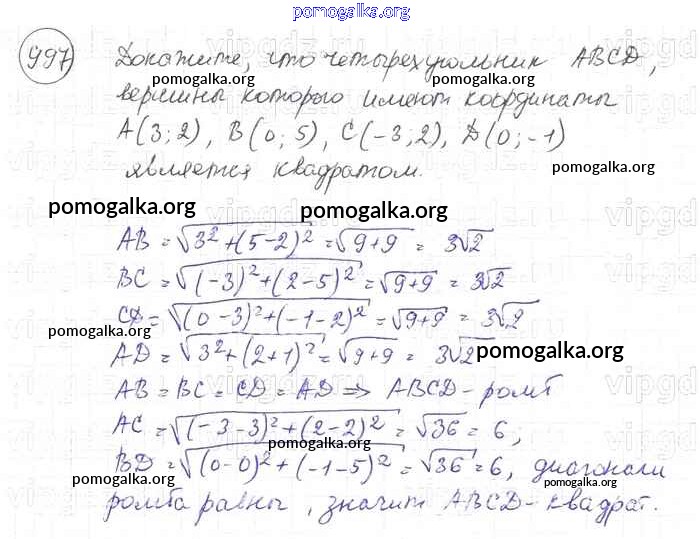 pomogalka.org
997) Докажите, что четырехугольник ABCD,
pomogalka.org pomogalka.org
вершины которого имеют координаты
A(3; 2), B(0; 5), C(-3; 2), D(0; -1)
является квадратом. pomogalka.org
pomogalka.org pomogalka.org
AB = √(3² + (5-2)²) = √(9+9) = 3√2
BC = √((-3)² + (2-5)²) = √(9+9) = 3√2
CD = √((0-3)² + (-1-2)²) = √(9+9) = 3√2
pomogalka.org
AD = √(3² + (2+1)²) = √(9+9) = 3√2 pomogalka.org
AB = BC = CD = AD ⇒ ABCD - ромб
AC = √((-3-3)² + (2-2)²) = √36 = 6;
pomogalka.org
BD = √((0-0)² + (-1-5)²) = √36 = 6, диагонали
pomogalka.org pomogalka.org
ромба равны, значит ABCD - квадрат.